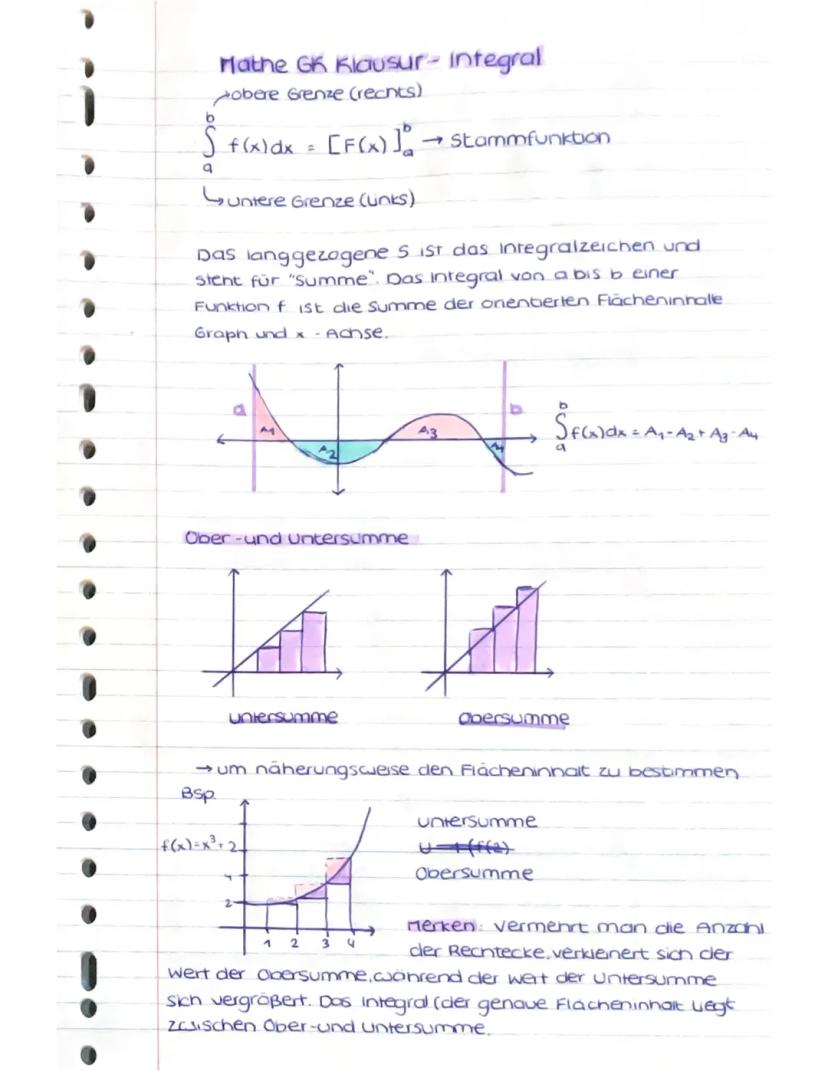 Mathe GK Klausur - Integral
obere Grenze (rechts)
b
∫ f(x)dx = [F(x)]ᵇₐ → Stammfunktion
a
untere Grenze (links)
Das langgezogene S ist das Integralzeichen und
steht für "Summe". Das Integral von a bis b einer
Funktion f ist die Summe der orientierten Flächeninhalte
Graph und x - Achse.
a
A1
A2
A3
A4
b
b
∫ f(x)dx = A1 - A2 + A3 - A4
a
Ober - und Untersumme
Untersumme
Obersumme
→ um näherungsweise den Flächeninhalt zu bestimmen
Bsp.
f(x)=x³+2
4
2
1 2 3 4
Untersumme
Obersumme
Merken: Vermehrt man die Anzahl
der Rechtecke, verkleinert sich der
Wert der Obersumme, während der Wert der Untersumme
sich vergrößert. Das Integral (der genaue Flächeninhalt liegt
zwischen Ober-und Untersumme.